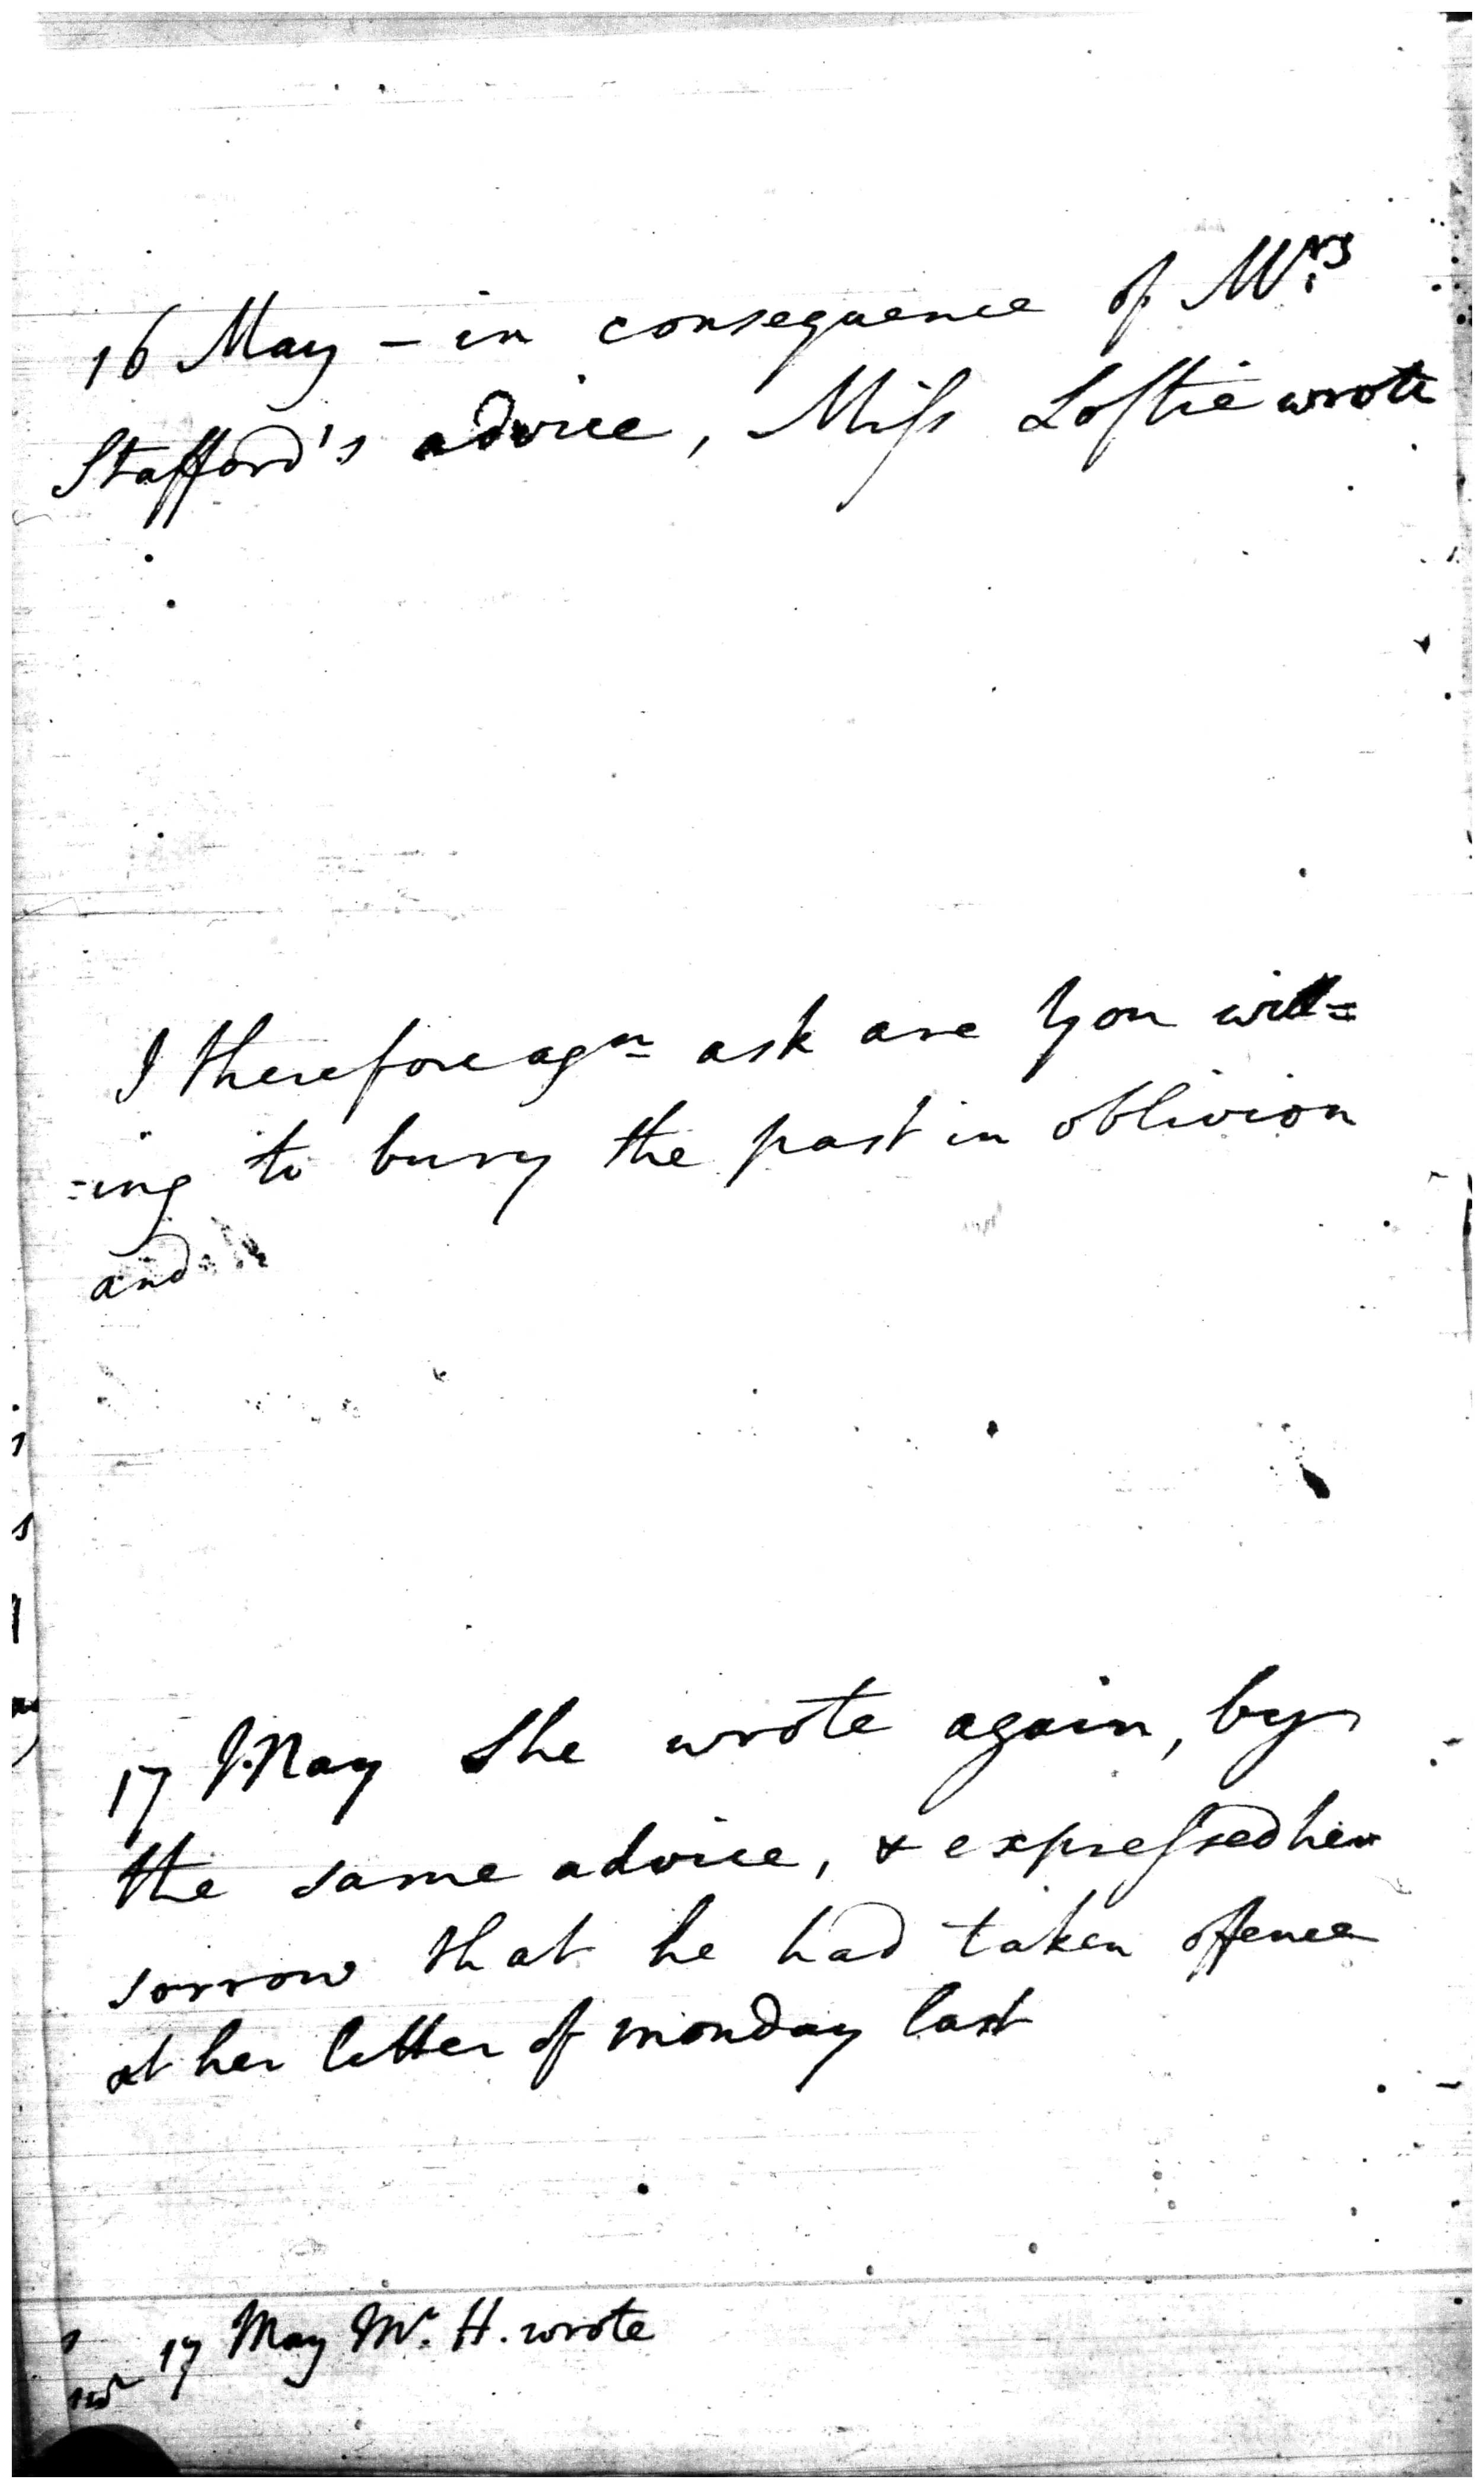 16 May – in consequence of Mrs
Stafford's advice, Miſs Loftie wrote
I therefore agn ask are you will=
=ing to bury the past in oblivion
and
17 May She wrote again, by
the same advice, & expreſsed her
sorrow that he had taken offence
at her letter of monday last
17 May Mr. H. wrote